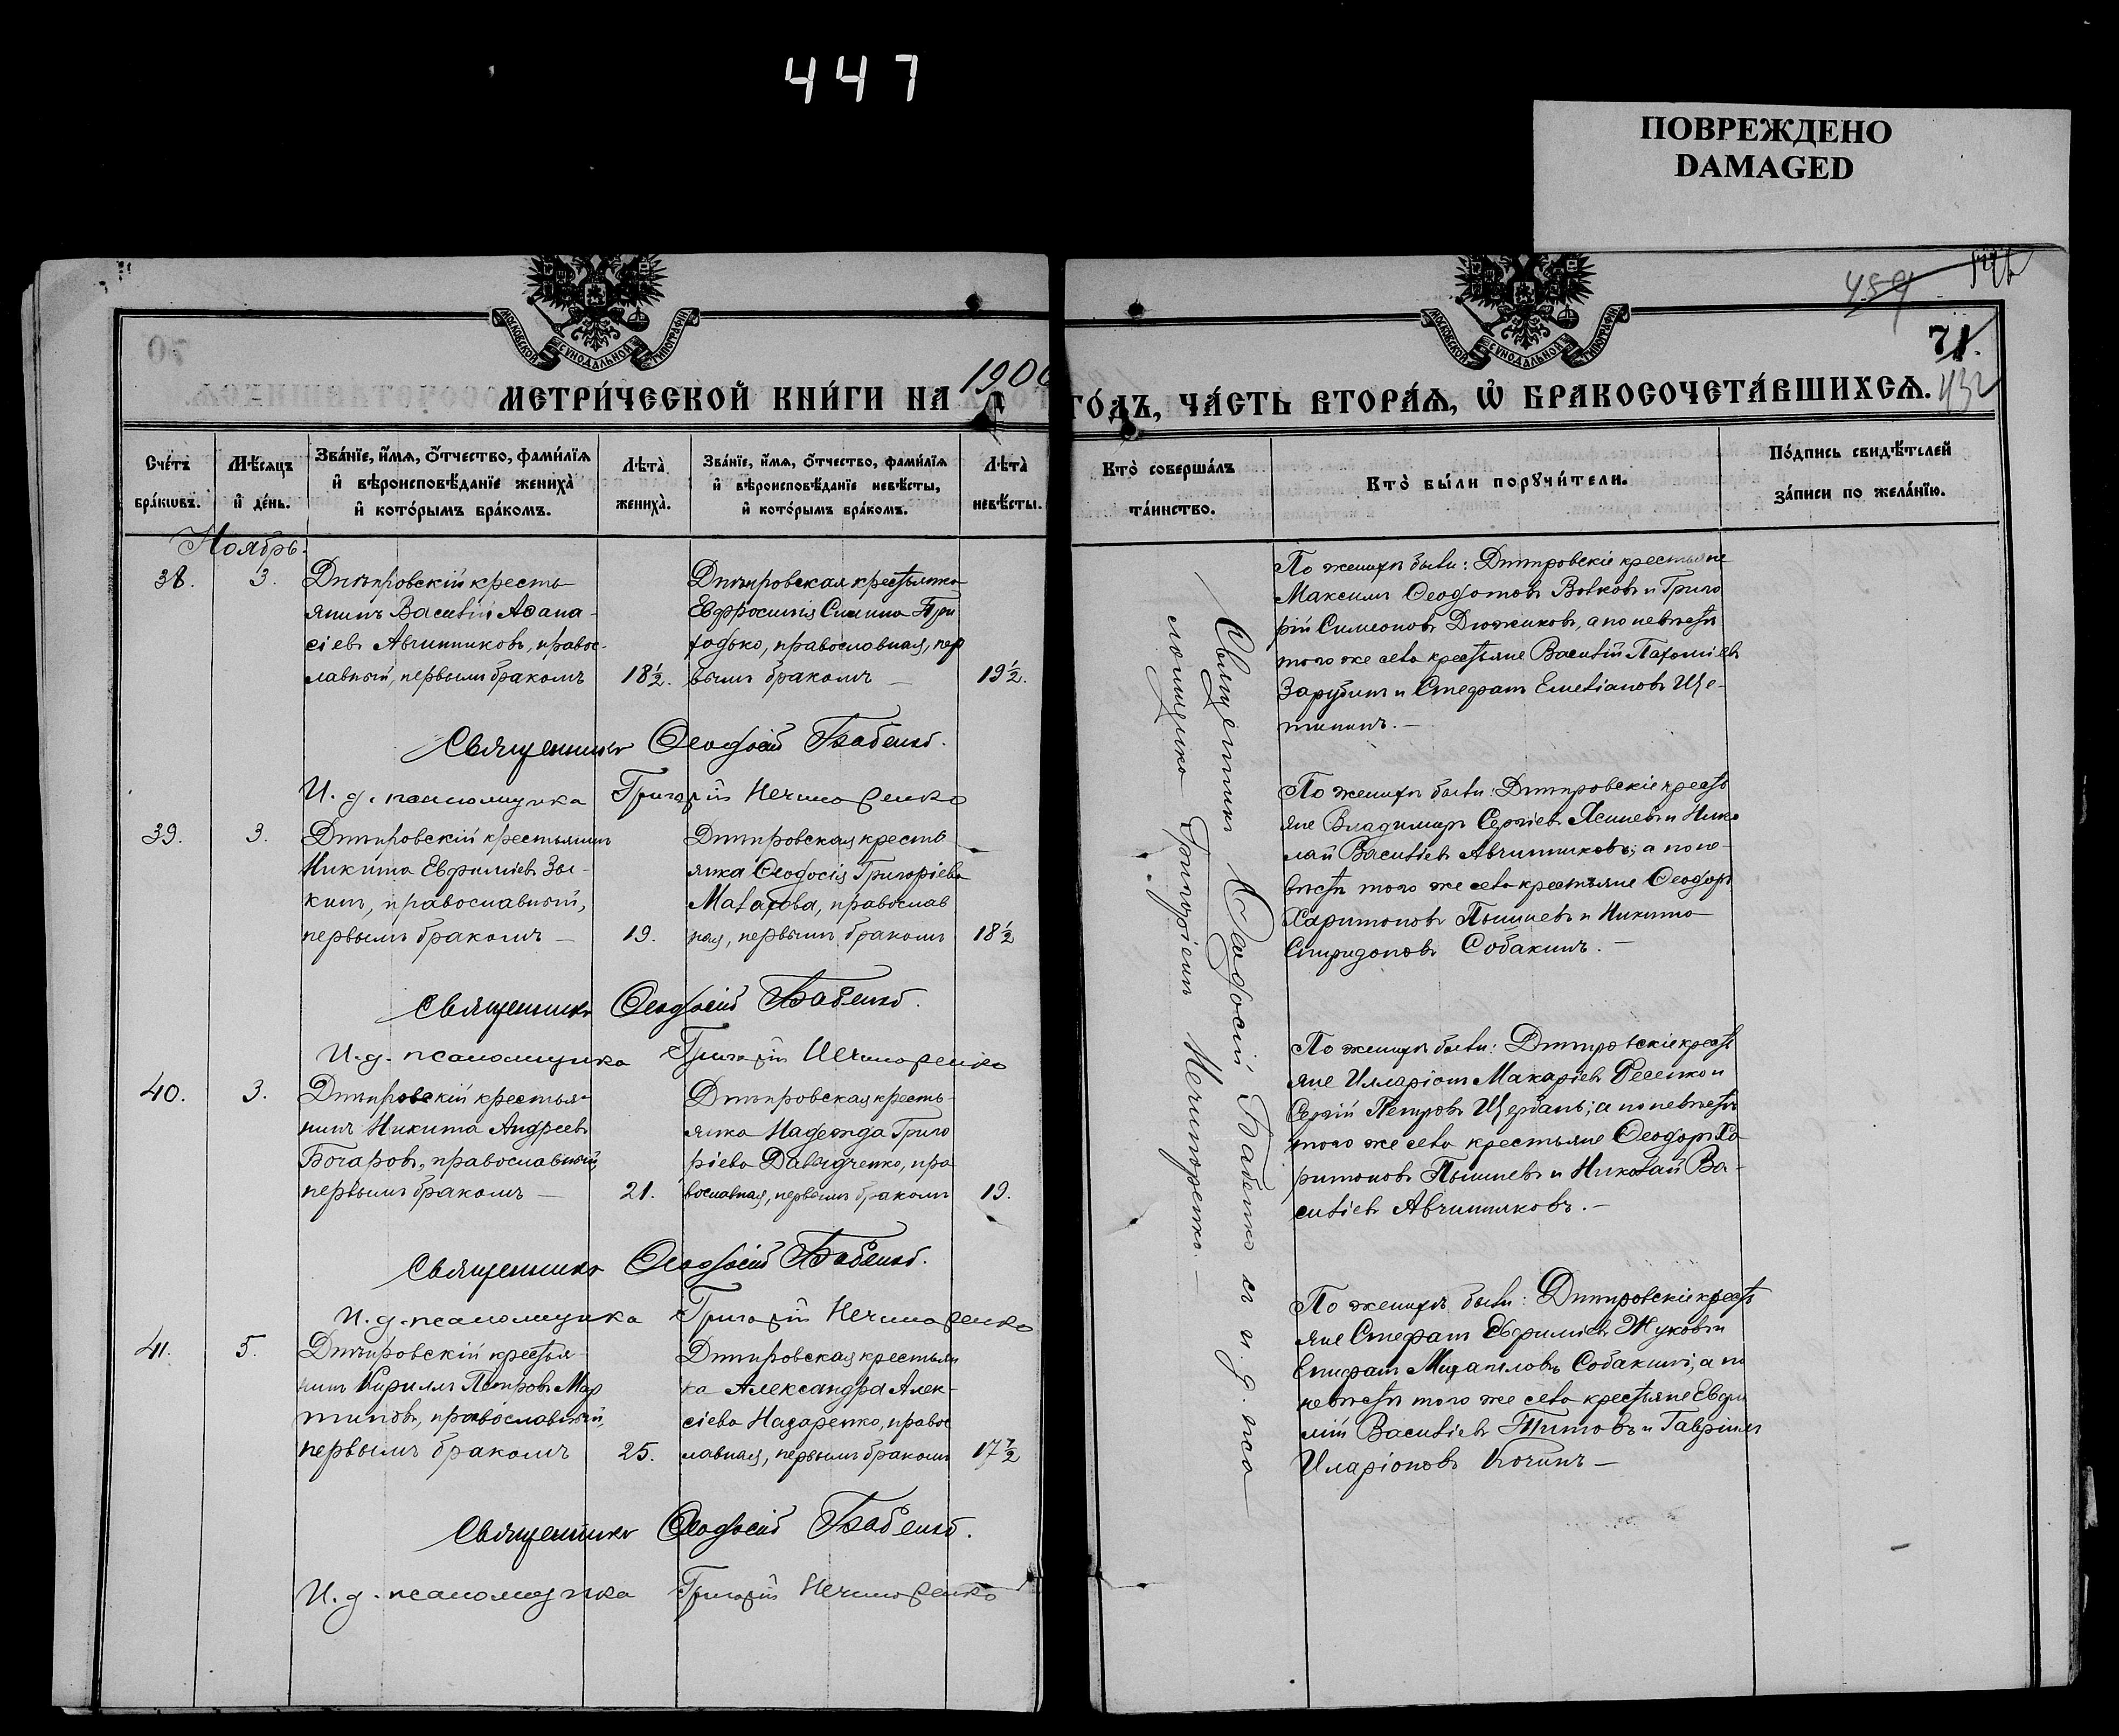 447
ПОВРЕЖДЕНО
DAMAGED
459
71.
432
МОСКОВСКОЙ СѴНОДАЛЬНОЙ ТИПОГРАФІИ
МОСКОВСКОЙ СѴНОДАЛЬНОЙ ТИПОГРАФІИ
МЕТРИ́ЧЕСКОЙ КНИ́ГИ НА 1900
ГО́ДЪ, ЧА́СТЬ ВТОРА́Ѧ, Ѽ БРАКОСОЧЕТА́ВШИХСѦ.
Сче́тъ бра́кѡвъ.
Мѣ́сяцъ и҆ де́нь.
Зва́нїе, и҆́мѧ, ѻ҆́тчество, фами́лїѧ
и҆ вѣроисповѣ́данїе жениха̀
и҆ кото́рымъ бра́комъ.
Лѣ́та̀ жениха̀.
Зва́нїе, и҆́мѧ, ѻ҆́тчество, фами́лїѧ
и҆ вѣроисповѣ́данїе невѣ́сты,
и҆ кото́рымъ бра́комъ.
Лѣ́та̀ невѣ́сты.
Кто̀ соверша́лъ
та́инство.
Кто̀ бы́ли порꙋчи́тели.
По́дпись свидѣ́телей
за́писи по жела́нїю.
Ноябрь.
38.
3.
Днѣпровскій кресть-
янинъ Василій Аѳана-
сіевъ Авчинниковъ, правос-
лавный, первымъ бракомъ
18½.
Днѣпровская крестьянка
Евфросинія Сивина При
ходько, православная, пер
вымъ бракомъ —
19½.
По женихѣ были: Днѣпровскіе крестьяне
Максимъ Ѳеодотовъ Волковъ и Григо
рій Симеоновъ Дюжиковъ, а по невѣстѣ
того же села крестьяне Василій Пахоміевъ
Зарубинъ и Стефанъ Емеліановъ Ще-
тининъ. —
Священникъ Ѳеодосій Бабенко.
И. д. псаломщика Григорій Нечипоренко
39.
3.
Днѣпровскій крестьянинъ
Никита Евфиміевъ Зы-
кинъ, православный,
первымъ бракомъ —
19.
Днѣпровская кресть
янка Ѳеодосія Григоріева
Малахова, православ
ная, первымъ бракомъ
18½
По женихѣ были: Днѣпровскіе кресть
яне Владимиръ Сергіевъ Ясиневъ и Нико
лай Василіевъ Авчинниковъ; а по не-
вѣстѣ того же села крестьяне Ѳеодоръ
Харитоновъ Пышневъ и Никита
Спиридоновъ Собакинъ. —
Священникъ Ѳеодосій Бабенко.
И. д. псаломщика Григорій Нечипоренко
40.
3.
Днѣпровскій крестья-
нинъ Никита Андреевъ
Бочаровъ, православный,
первымъ бракомъ —
21.
Днѣпровская кресть-
янка Надежда Григо
ріева Давидченко, пра
вославная, первымъ бракомъ
19.
По женихѣ были: Днѣпровскіе кресть
яне Илларіонъ Макаріевъ Фесенко и
Сергій Петровъ Щербань; а по невѣстѣ
того же села крестьяне Ѳеодоръ Ха
ритоновъ Пышневъ и Николай Ва-
силіевъ Авчинниковъ. —
Священникъ Ѳеодосій Бабенко.
И. д. псаломщика Григорій Нечипоренко
41.
5.
Днѣпровскій крестья-
нинъ Кириллъ Петровъ Мар
тыновъ, православный,
первымъ бракомъ
25.
Днѣпровская крестьян
ка Александра Алек-
сіева Назаренко, правос
лавная, первымъ бракомъ
17½
По женихѣ были: Днѣпровскіе кресть
яне Стефанъ Евфиміевъ Жуковъ и
Епифанъ Михаиловъ Собакинъ; а по
невѣстѣ того же села крестьяне Евфи
мій Василіевъ Титовъ и Гавріилъ
Иларіоновъ Кочинъ —
Священникъ Ѳеодосій Бабенко.
И. д. псаломщика Григорій Нечипоренко
Священникъ Ѳеодосій Бабенко съ и. д. пса-
ломщика Григоріемъ Нечипоренко. —